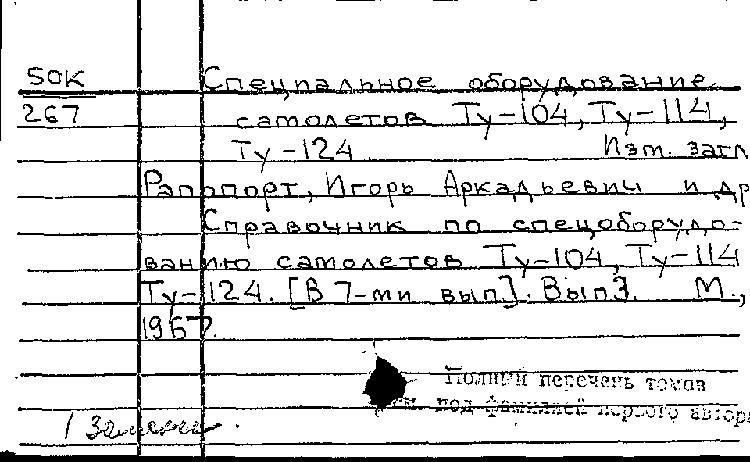 50К Специальное оборудование
267 самолетов Ту-104, Ту-114,
Ту-124 Изм. загл
Рапопорт, Игорь Аркадьевич и др
Справочник по спецоборудо-
ванию самолетов Ту-104, Ту-114
Ту-124. [В 7-ми вып]. Вып3. М.,
1967.
Полный перечень томов
см. под фамилией первого автора